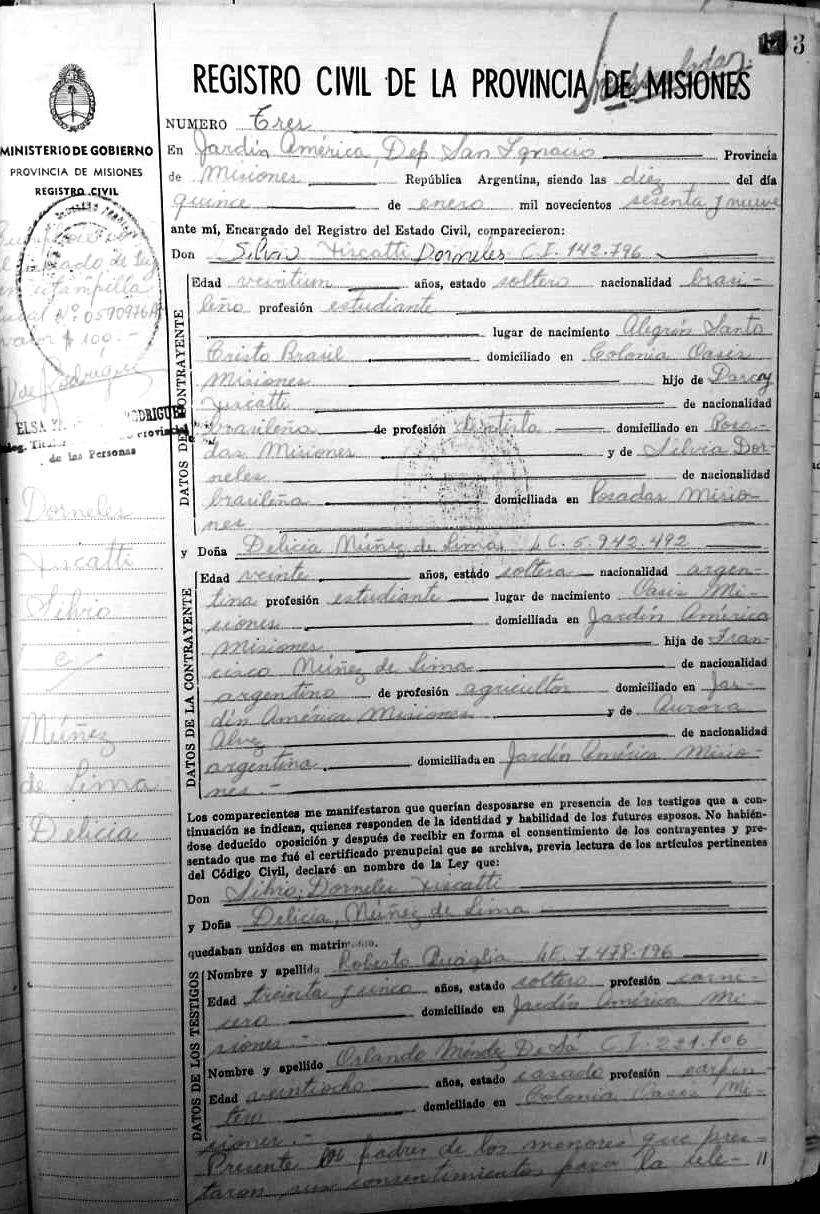 3
REGISTRO CIVIL DE LA PROVINCIA DE MISIONES
MINISTERIO DE GOBIERNO
PROVINCIA DE MISIONES
REGISTRO CIVIL
NUMERO Tres
En Jardín América, Dep. San Ignacio Provincia
de Misiones República Argentina, siendo las diez del día
quince de enero mil novecientos sesenta y nueve
ante mí, Encargado del Registro del Estado Civil, comparecieron:
Don Silvio Viscatti Dorneles C.I. 142.796
DATOS DEL CONTRAYENTE
Edad veintiun años, estado soltero nacionalidad brasi-
leño profesión estudiante
lugar de nacimiento Alegría Santo
Cristo Brasil domiciliado en Colonia Oasis
Misiones hijo de Darcy
Viscatti de nacionalidad
brasileña de profesión dentista domiciliado en Posa-
das Misiones y de Silvia Dor-
neles de nacionalidad
brasileña domiciliada en Posadas Misio-
nes
y Doña Delicia Núñez de Lima L.C. 5.942.492
DATOS DE LA CONTRAYENTE
Edad veinte años, estado soltera nacionalidad argen-
tina profesión estudiante lugar de nacimiento Oasis Mi-
siones domiciliada en Jardín América
Misiones hija de Fran-
cisco Núñez de Lima de nacionalidad
argentino de profesión agricultor domiciliado en Jar-
dín América Misiones y de Aurora
Alvez de nacionalidad
argentina domiciliada en Jardín América Misio-
nes.-
Los comparecientes me manifestaron que querían desposarse en presencia de los testigos que a con-
tinuación se indican, quienes responden de la identidad y habilidad de los futuros esposos. No habién-
dose deducido oposición y después de recibir en forma el consentimiento de los contrayentes y pre-
sentado que me fué el certificado prenupcial que se archiva, previa lectura de los artículos pertinentes
del Código Civil, declaré en nombre de la Ley que:
Don Silvio, Dorneles Viscatti
y Doña Delicia, Núñez de Lima
quedaban unidos en matrimonio.
DATOS DE LOS TESTIGOS
Nombre y apellido Roberto Quaglia L.E. 7.478.196
Edad treinta y cinco años, estado soltero profesión carni-
cero domiciliado en Jardín América Mi-
siones.-
Nombre y apellido Orlando Méndez De Sá C.I. 221.706
Edad veintiocho años, estado casado profesión carpin-
tero domiciliado en Colonia Oasis Mi-
siones.-
Presente los padres de los menores que pres-
taron sus consentimientos para la cele- //
Nº 0590976
valor $ 100.-
de Rodríguez
ELSA RODRIGUEZ
de las Personas
Dorneles
Viscatti
Silvio
e/
Núñez
de Lima
Delicia